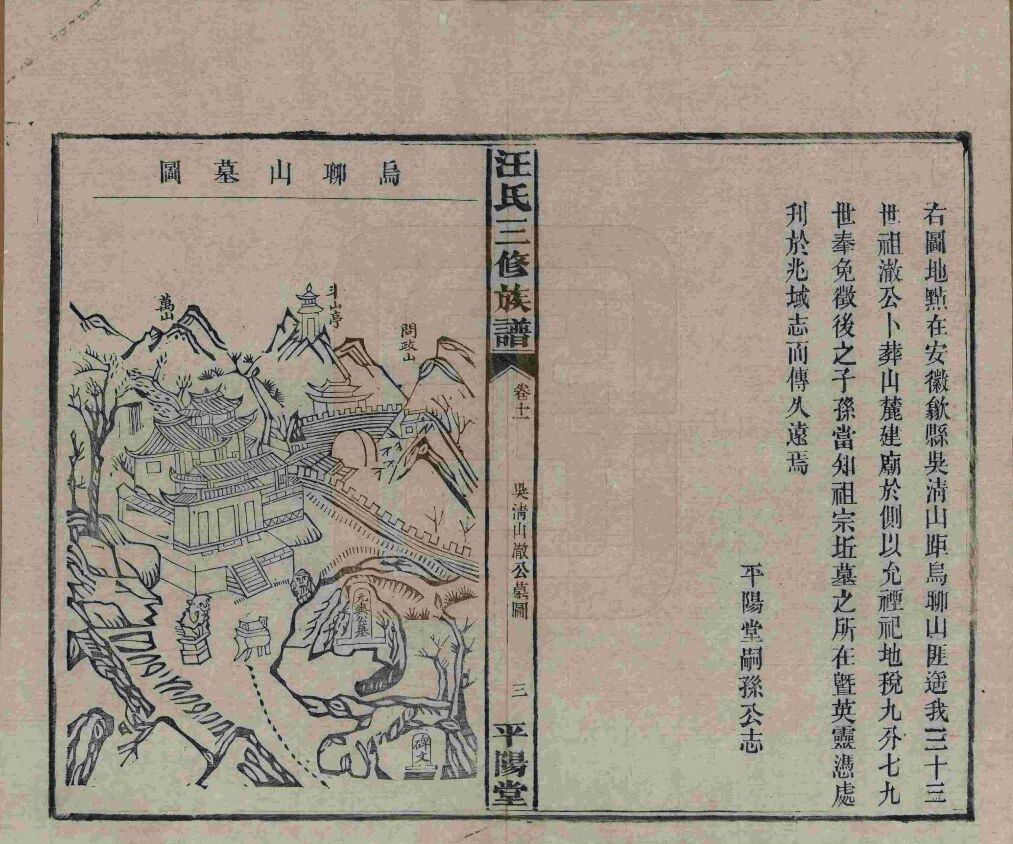 右圖地點在安徽歙縣吳淸山距烏聊山匪遥我三十三
世祖澈公卜葬山麓建廟於側以允禋祀地稅九分七九
世奉免徵後之子孫當知祖宗坵墓之所在曁英靈憑處
刋於兆域志而傳久遠焉
平陽堂嗣孫公志
汪氏三修族譜
卷十一
吳淸山澈公墓圖
三
平陽堂
烏聊山墓圖
問政山
斗山亭
萬山
公墓
碑文